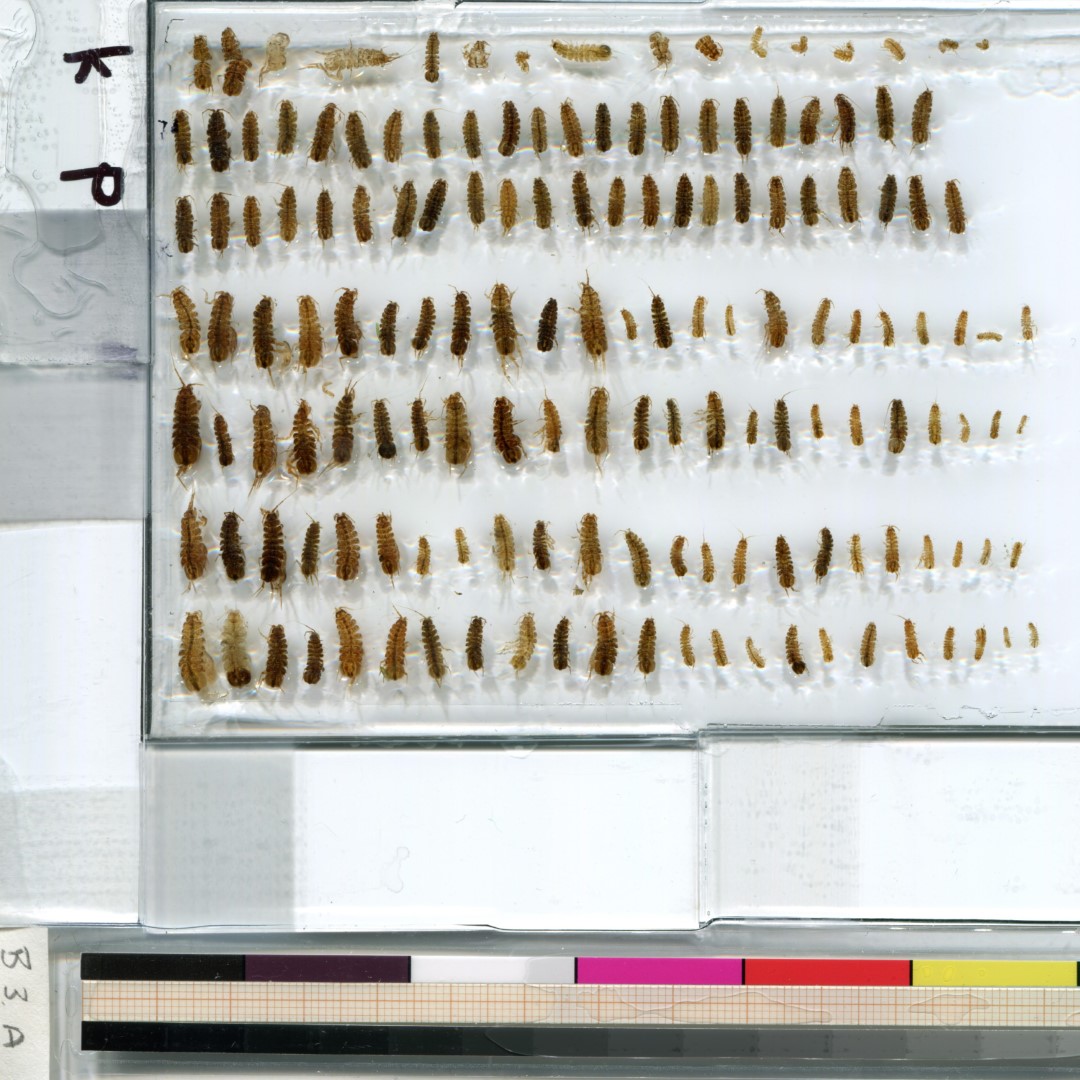 K
P
B3A